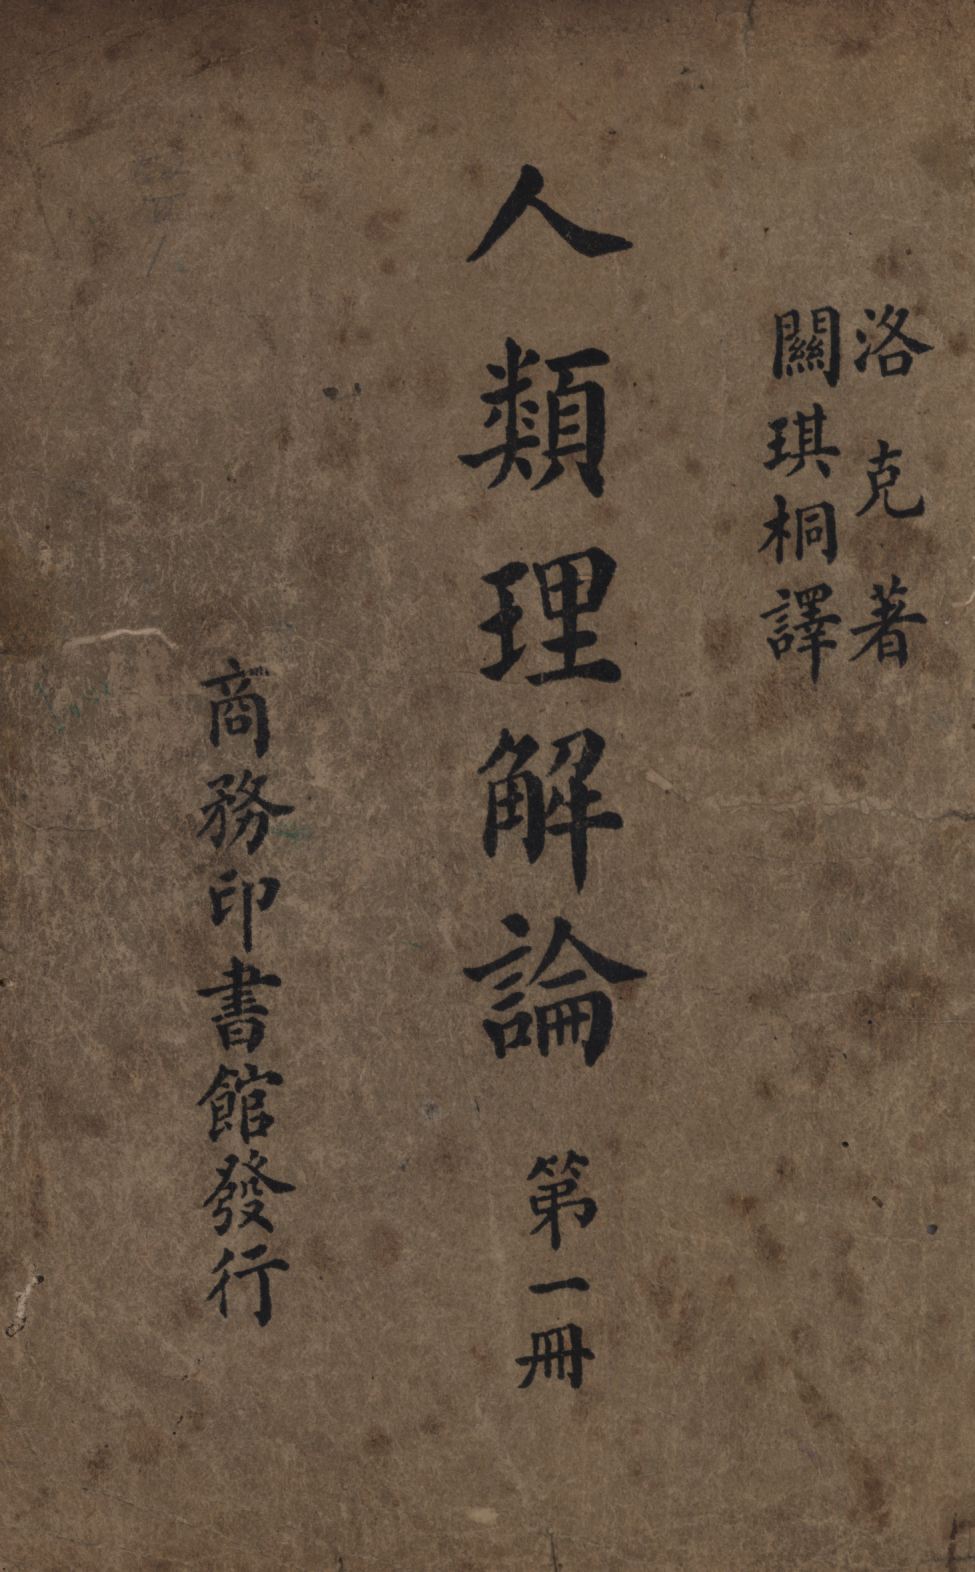 洛克著
關琪桐譯
人類理解論 第一冊
商務印書館發行